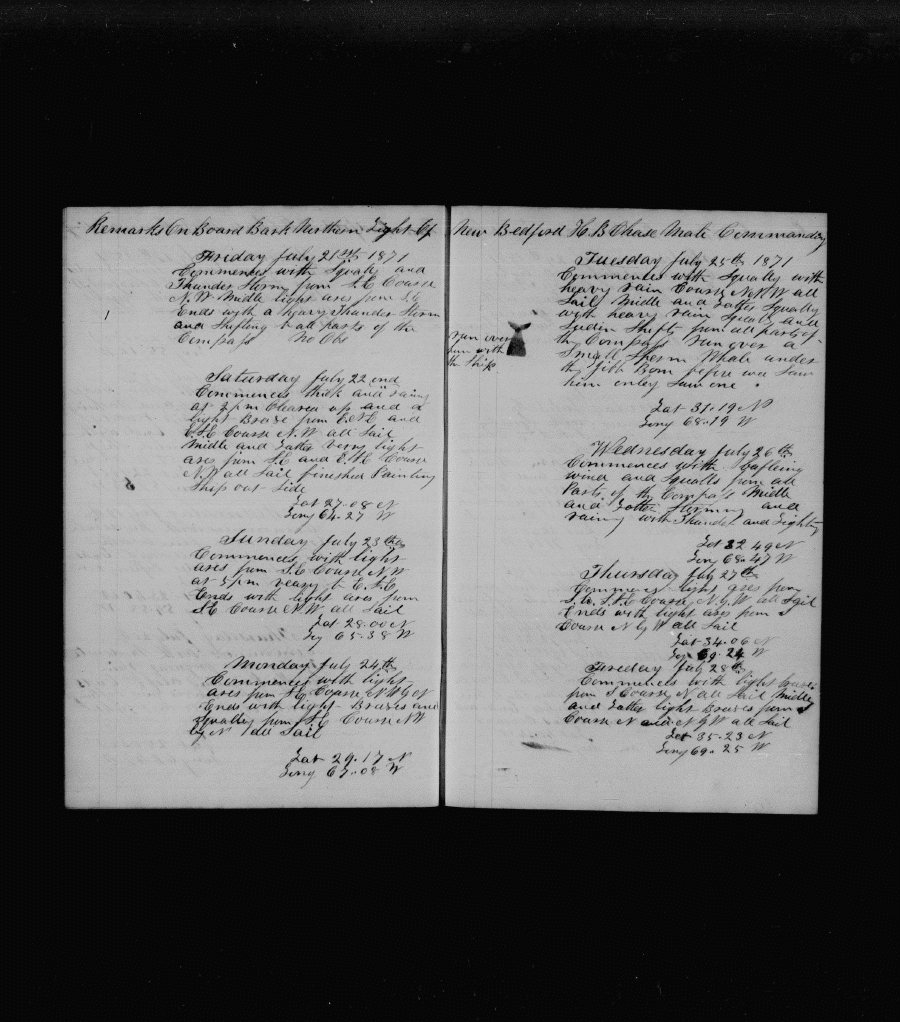 Remarks On Board Bark Northern Light Of
Friday July 21st 1871
Commences with Squals and
Thunder Storm from S.E Course
N.W Middle light ares from S.E
Ends with a heavy Thunder Storm
and Shifting to all parts of the
Compass No Obs
Saturday July 22 ond
Commences thick and rainy
at 3 pm Cleared up and a
light Brese from E.N.E and
E.S.E Course N.W all Sail
Middle and Latter verry light
ares from S.E and E.S.E Course
N.W all Sail finished Painting
Ship out Side
Lat 27.08 N
Long 64.27 W
Sunday July 23th
Commences with light
ares from S.E Course N.W
at 5 pm veary to E.S.E
Ends with light ares from
S.E Course N.W all Sail
Lat 28.00 N
Log 65.38 W
Monday July 24th
Commences with light
ares from S.E Course N.W by N
Ends with light Brases and
Squally from S.E Course NW
by N all Sail
Lat 29.17 N
Long 67.08 W
New Bedford H. B Chase Mate Commanding
Tuesday July 25th 1871
Commences with Squally with
heavy rain Course N.W all
Sail Middle and Latter Squally
with heavy rain Squals and
Suden Shifts from all parts of
thy Compass run over a
Small Sperm Whale under
thy Jibb Bom before wee Saw
him onley Saw one
run over
him with
the Ship
Lat 31.19 N
Long 68.19 W
Wednesday July 26th
Commences with bafleing
wind and Squalls from all
Parts of thy Compass Middle
and Latter Stormy and
rainy with Thunder and Lightng
Lat 32 49 N
Long 68.47 W
Thursday July 27th
Commences light ares from
S.W. S.S.E Course N.by.W all Sail
Ends with light ares from S
Course N by W all Sail
Lat 34.06 N
Log 69.24 W
Friday July 28th
Commences with light brases
from S Course N all Sail Middle
and Latter light Brases from S
Course N and N by W all Sail
Lat 35.23 N
Long 69.25 W